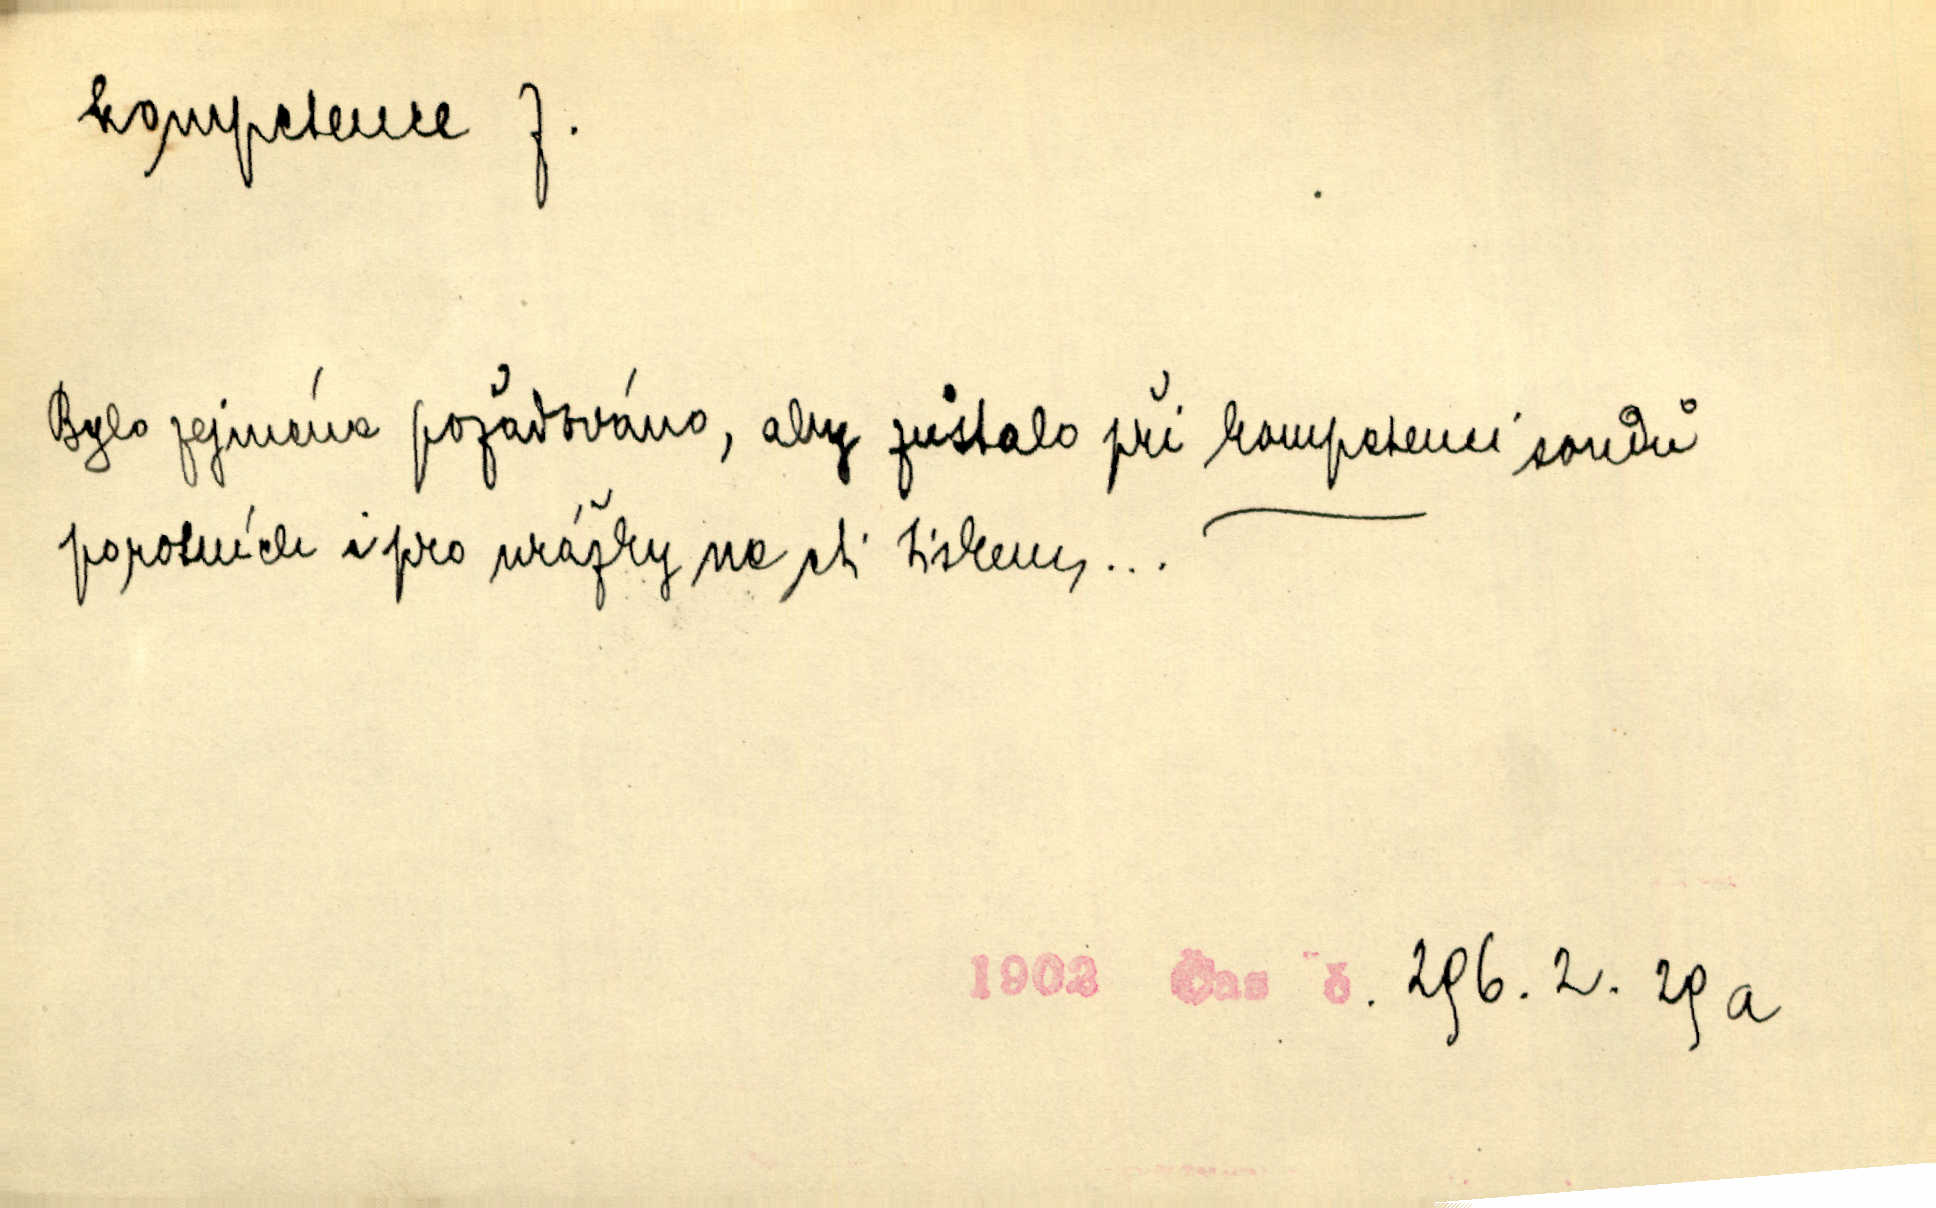 kompetence f.
Bylo zejména požadováno, aby zůstalo při kompetenci soudů
porotních i pro urážky na cti tiskem, ...
1902 Čas č. 296. 2. 29 a